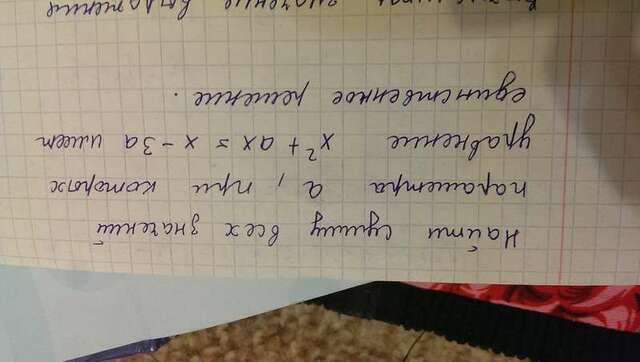 Найти сумму всех значений
параметра a, при которых
уравнение x² + ax = x - 3a имеет
единственное решение.
значение